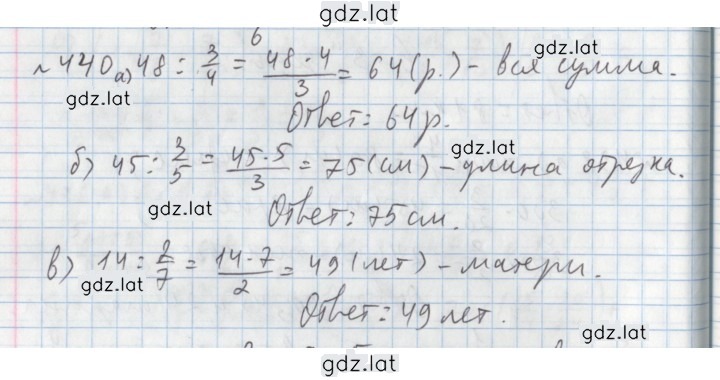 gdz.lat
6
№440 а) 48 : 3/4 = 48·4/3 = 64 (р.) - вся сумма.
gdz.lat
gdz.lat
Ответ: 64 р.
б) 45 : 3/5 = 45·5/3 = 75 (см) - длина отрезка.
gdz.lat
gdz.lat
Ответ: 75 см.
в) 14 : 2/7 = 14·7/2 = 49 (лет) - матери.
gdz.lat
Ответ: 49 лет.
gdz.lat
gdz.lat